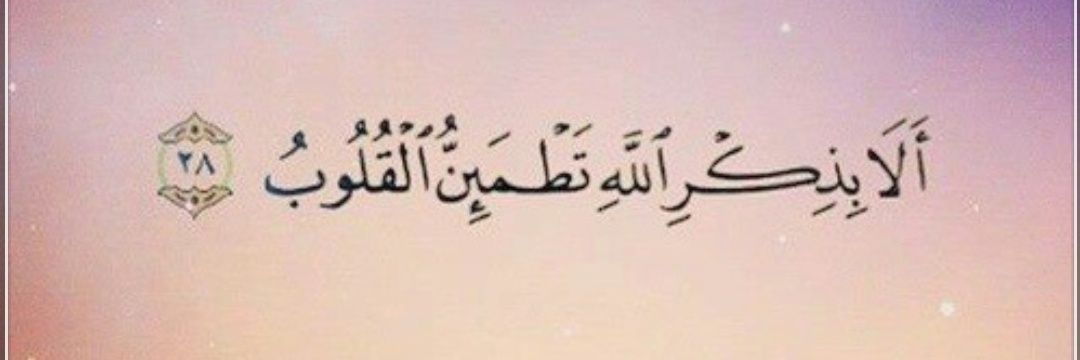 أَلَا بِذِكْرِ ٱللَّهِ تَطْمَئِنُّ ٱلْقُلُوبُ ٢٨